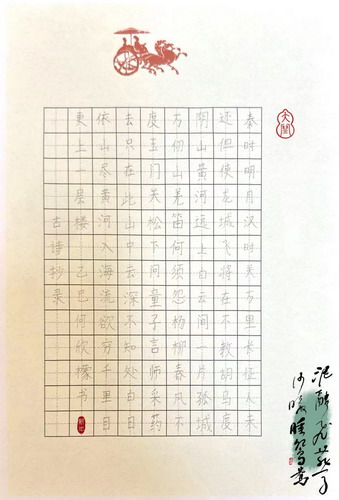 秦时明月汉时关万里长征人未
还但使龙城飞将在不教胡马度
阴山黄河远上白云间一片孤城
万仞山羌笛何须怨杨柳春风不
度玉门关松下问童子言师采药
去只在此山中云深不知处白日
依山尽黄河入海流欲穷千里目
更上一层楼 乙巳何欣檬书
古诗抄录
泥融飞燕子
沙暖睡鸳鸯